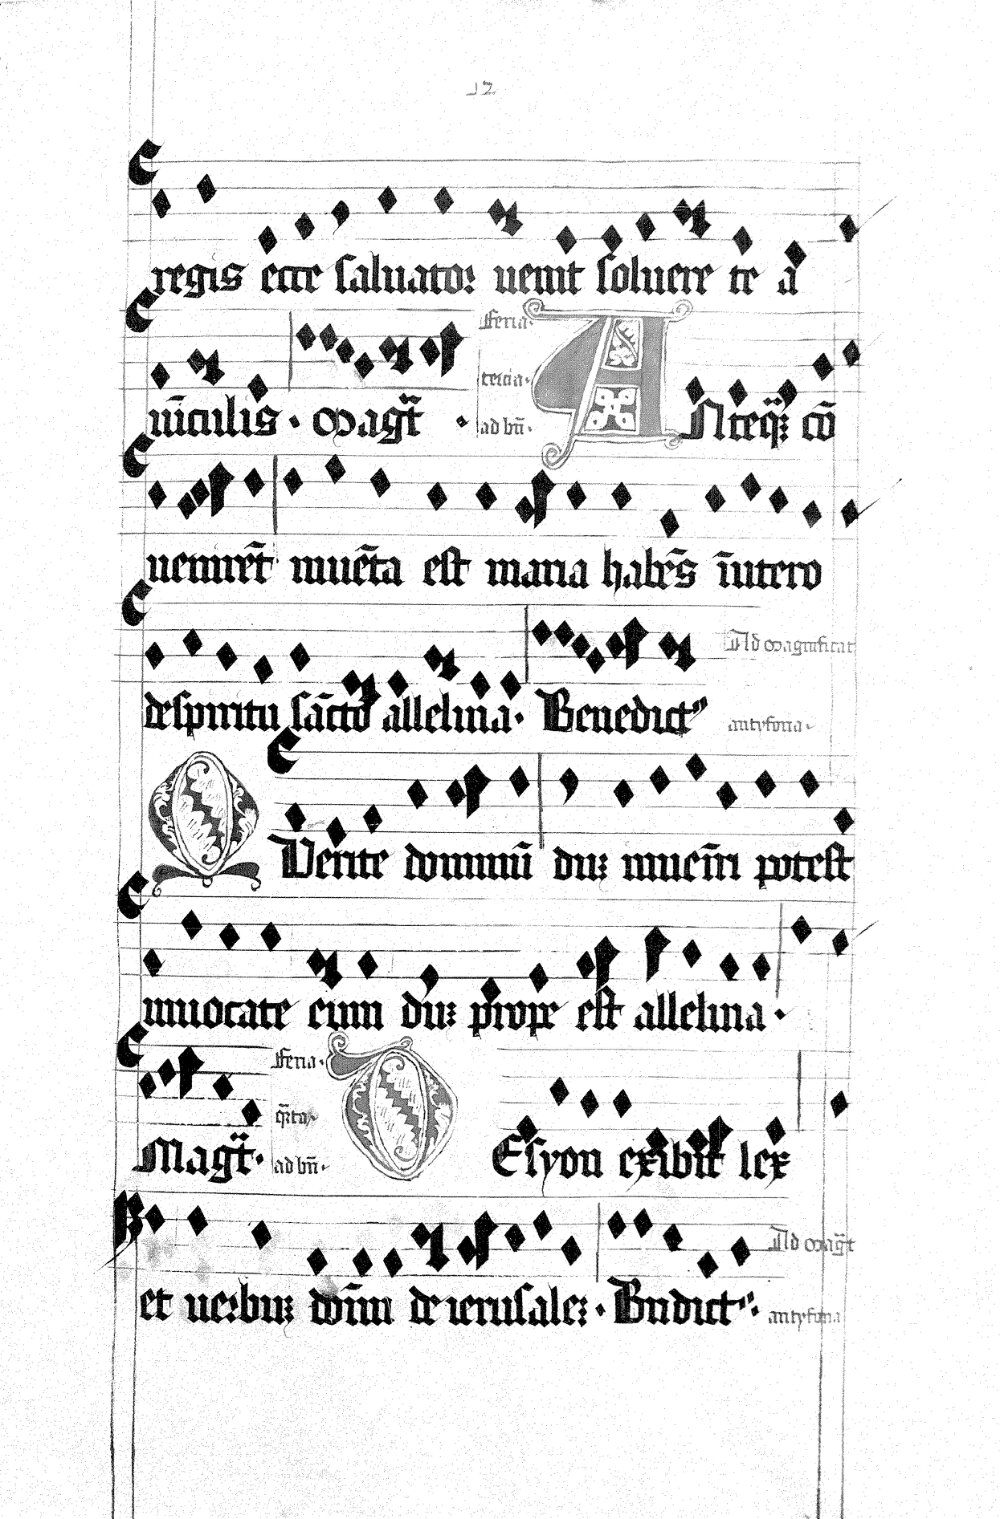 12
regis ecce saluator uenit soluere te a
uīculis · Magt̄ ·
Feria
tercia·
ad bn̄·
Anteq̄ȝ cō
uenirēt inuēta est maria habēs īutero
despiritu sācto alleluia· Benedictus
Ad magnificat
antyfona·
QVerite dominū duȝ inueīri potest
inuocate eum duȝ prope est alleluia·
Magt̄·
Feria·
qr̄ta
ad bn̄·
DEsyon exibit lex
et uerbuȝ domīni de ierusaleȝ · Bn̄dictus·
Ad magt̄
antyfona